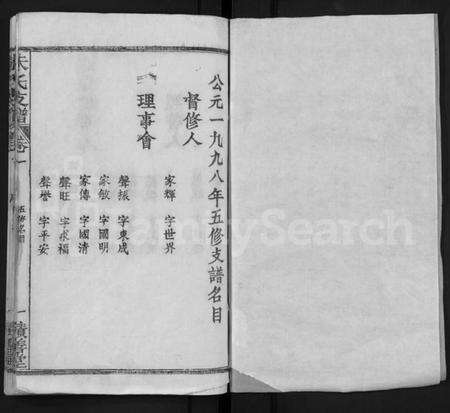 公元一九九八年五修支譜名目
督修人
家輝 字世界
理事會
聲振 字東成
家敏 字國明
家傳 字國清
聲旺 字求福
聲譽 字平安
朱氏支譜 卷一
五修名目
一
FamilySearch